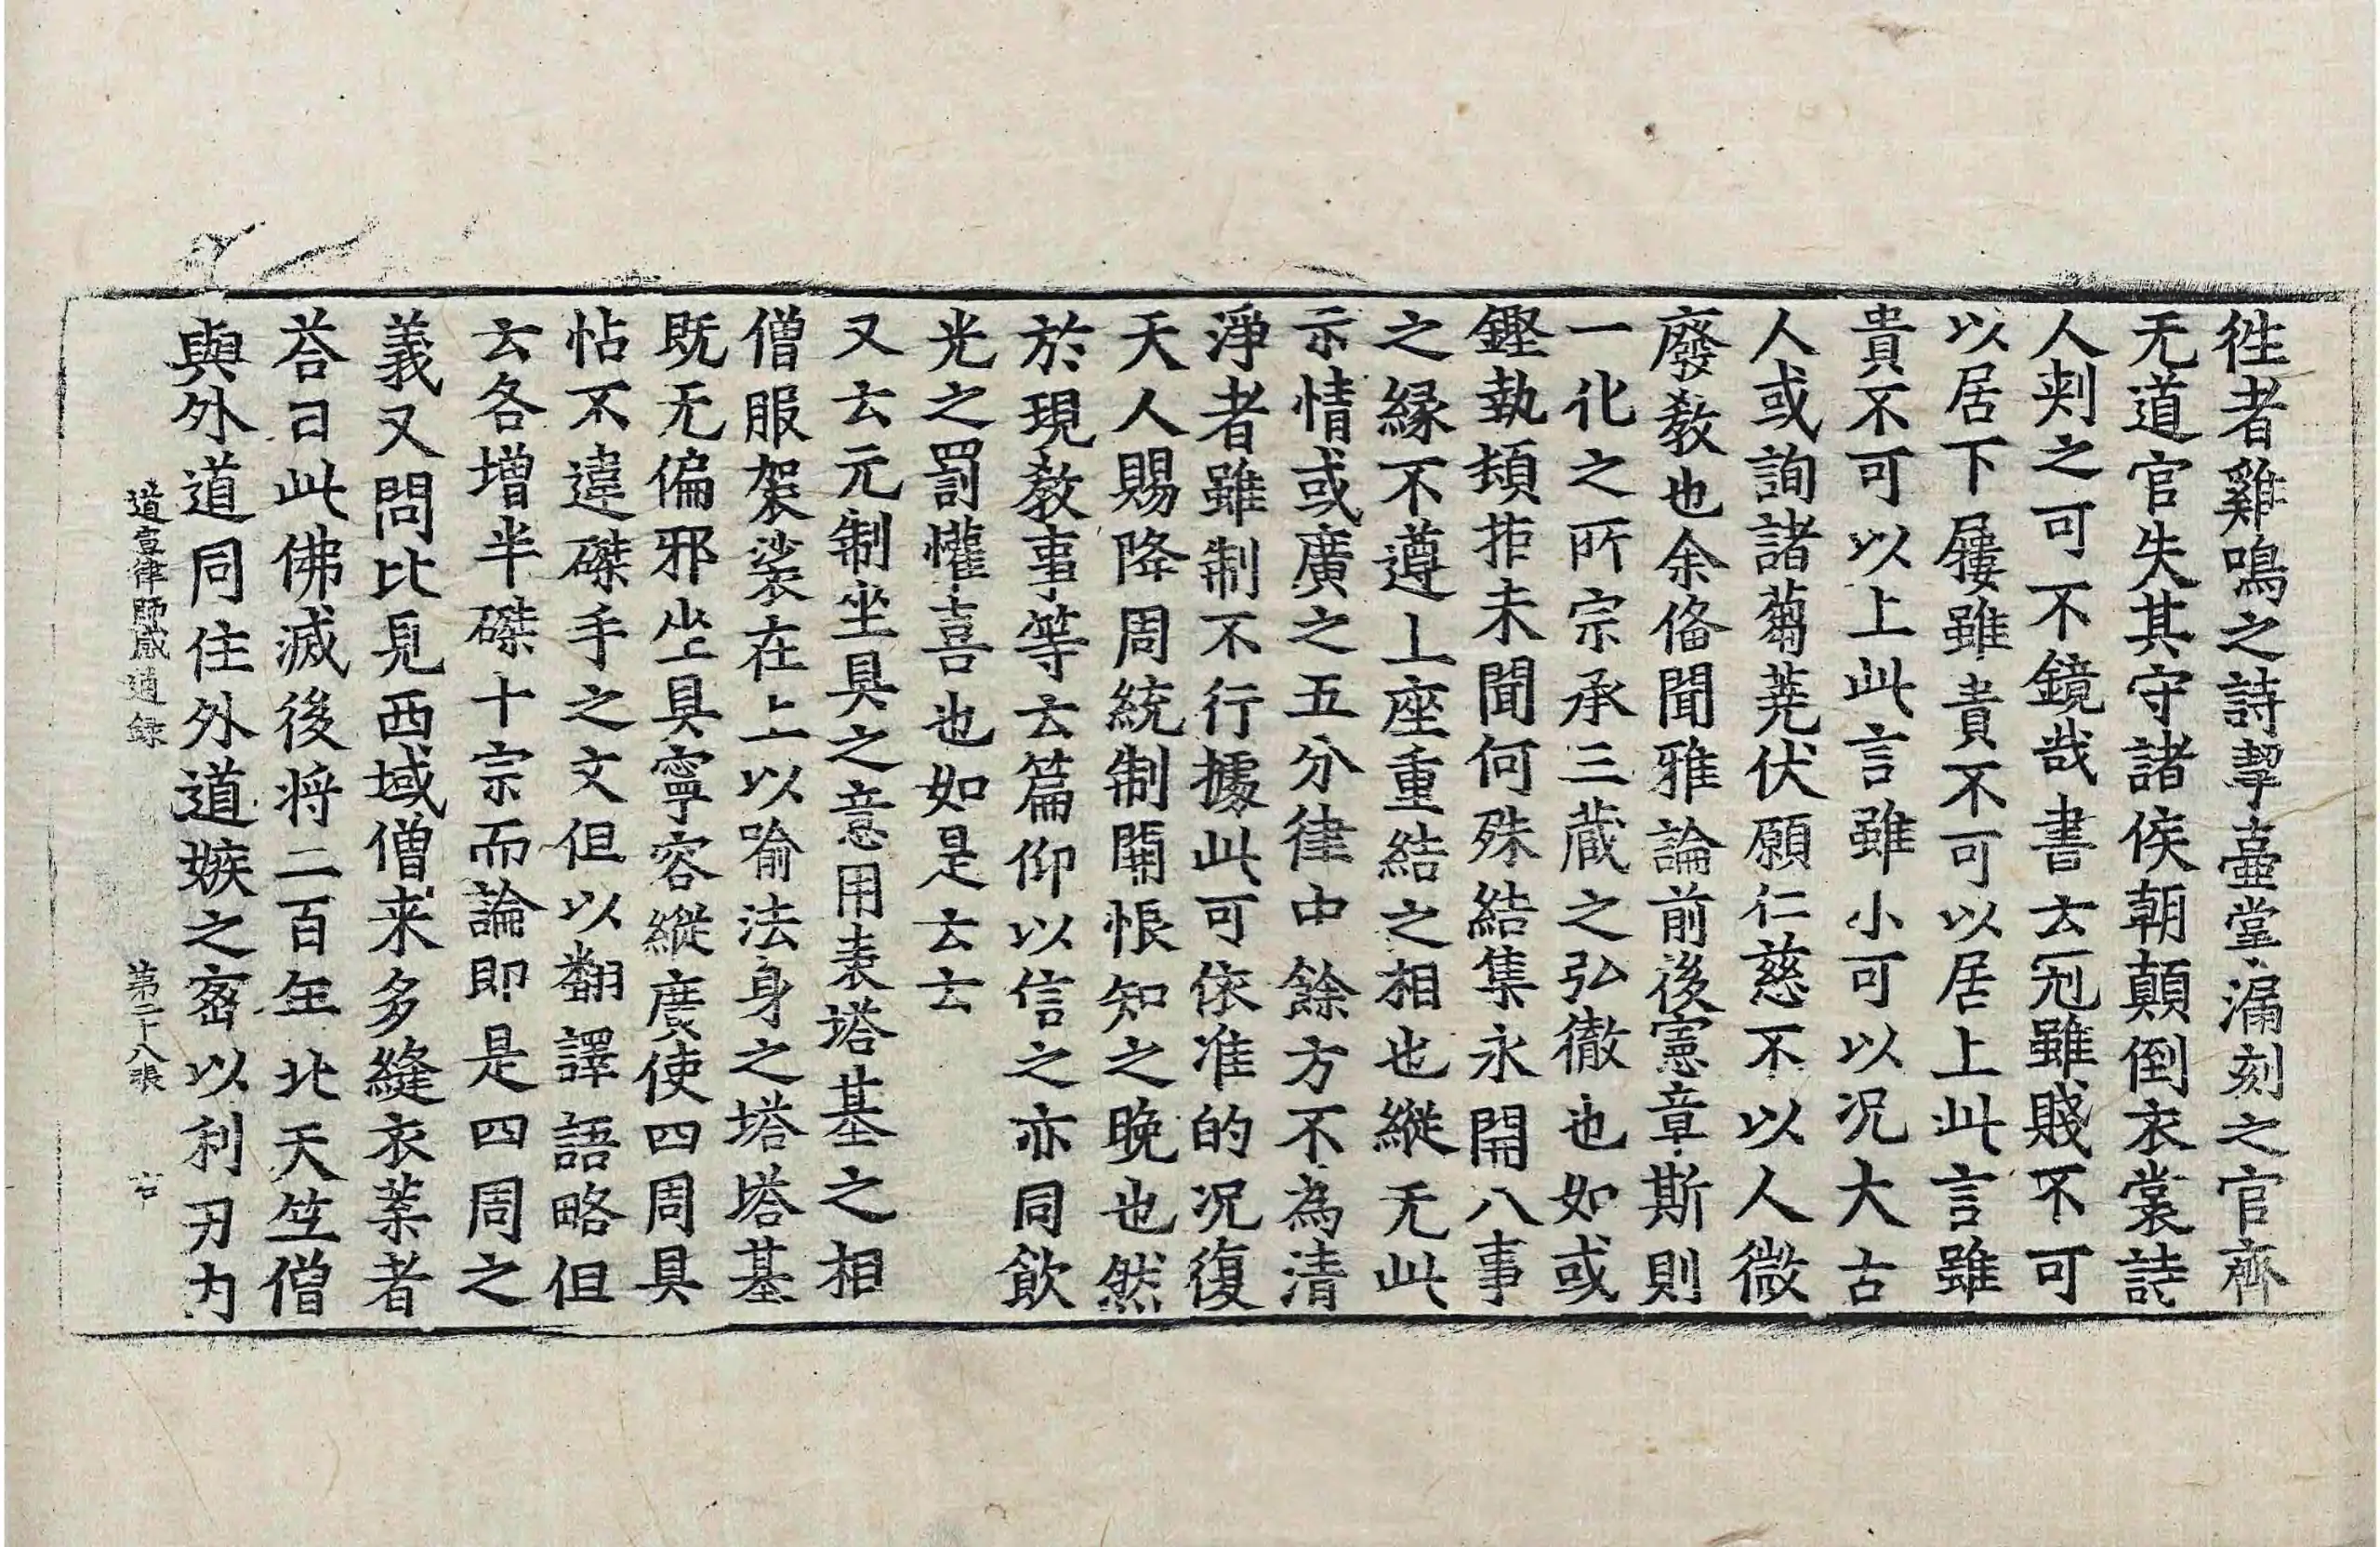 徃者雞鳴之詩挈壷掌漏刻之官齊
无道官失其守諸侯朝顛倒衣裳詩
人刾之可不鏡哉書云冠雖賤不可
以居下屨雖貴不可以居上此言雖
貴不可以上此言雖小可以况大古
人或詢諸蒭蕘伏願仁慈不以人微
廢教也余俻聞雅論前後憲章斯則
一化之所宗承三蔵之弘徹也如或
鏗執頑拒未聞何殊結集永開八事
之縁不遵上座重結之相也縱无此
示情或廣之五分律中餘方不為清
淨者雖制不行據此可依准的况復
天人賜降周統制開悵知之晚也然
於現教事等云篇仰以信之亦同飲
光之罰懽喜也如是云云
又云元制坐具之意用表塔基之相
僧服袈裟在上以喻法身之塔塔基
既无偏邪坐具寧容縱廣使四周具
帖不違磔手之文但以翻譯語略但
云各増半磔十宗而論即是四周之
義又問比見西域僧来多縫衣葉者
荅曰此佛滅後将二百年北天竺僧
與外道同住外道嫉之宻以利刃内
道宣律師感通錄 第二十八張